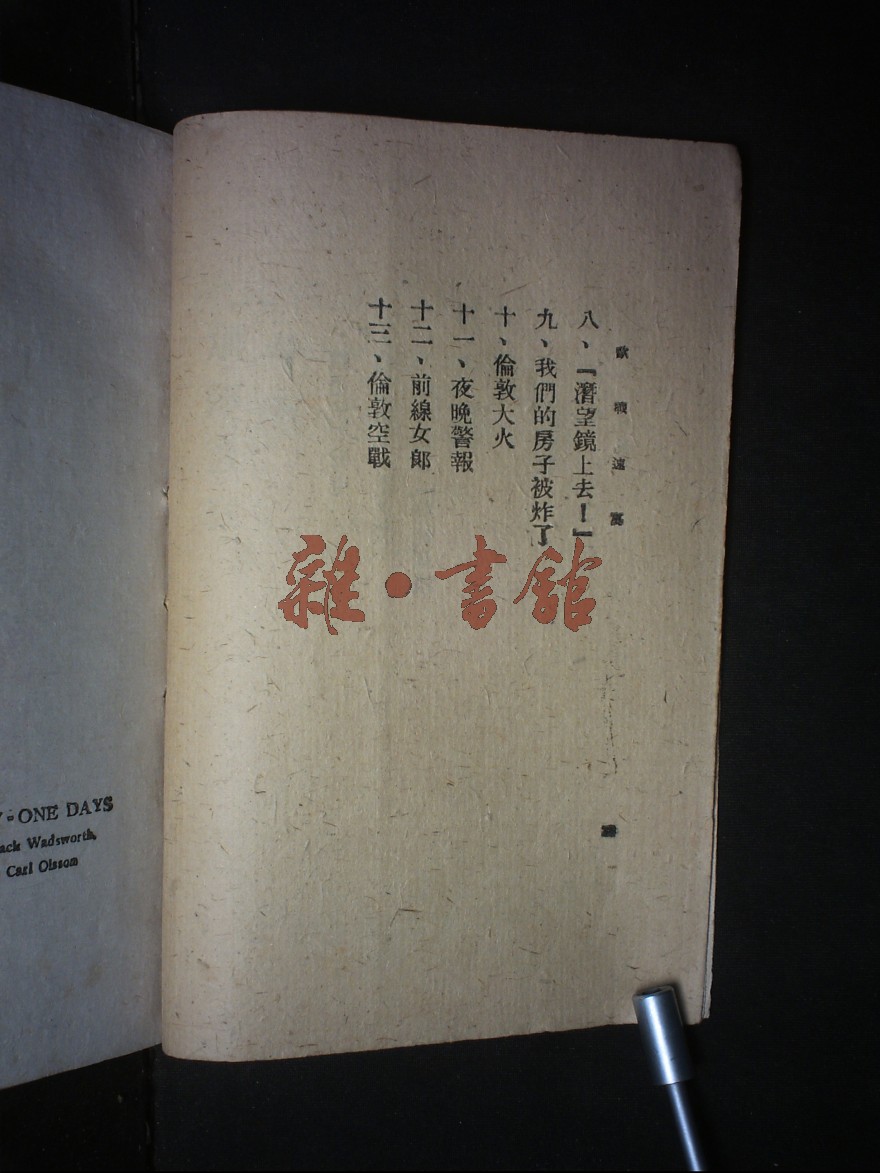 歐戰速寫
八、『潛望鏡上去！』
九、我們的房子被炸了
十、倫敦大火
十一、夜晚警報
十二、前線女郎
十三、倫敦空戰
雜·書館
ONE DAYS
Wadsworth,
Carl Olssom